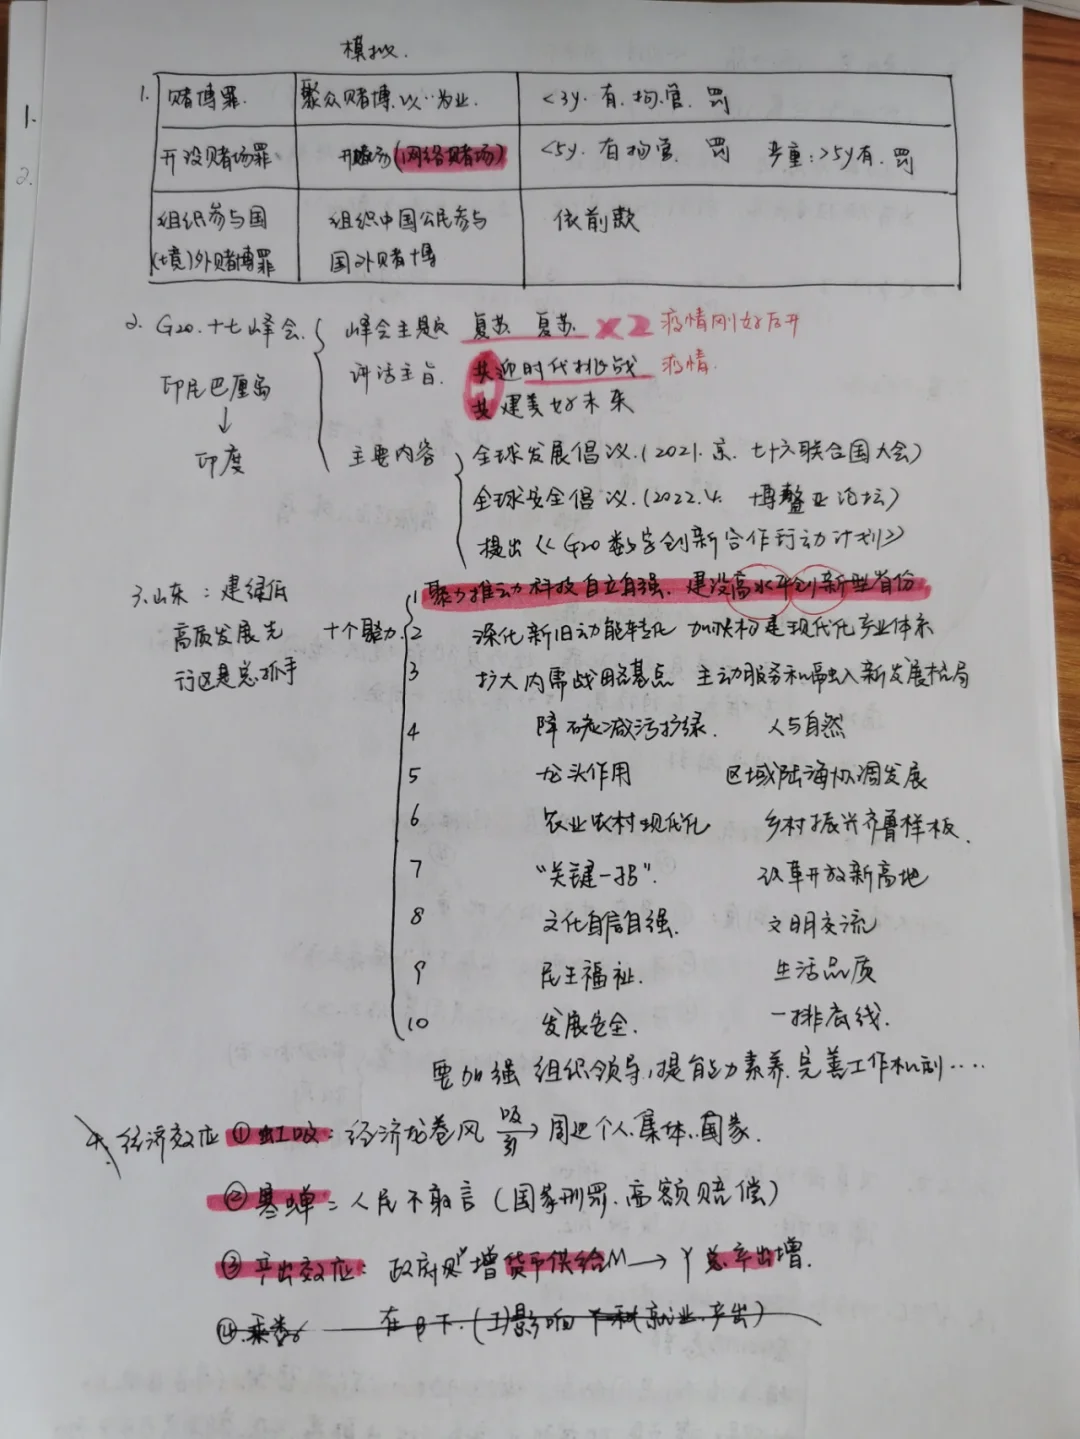 模拟.
1.
2.
1. 赌博罪. 聚众赌博.以··为业. <3y.有.拘.管. 罚
开设赌场罪 开赌场(网络赌场) <5y.有拘管. 罚 严重:>5y有.罚
组织参与国 组织中国公民参与 依前款
(境)外赌博罪 国外赌博
2. G20.十七峰会. 峰会主题 复苏 复苏 ×2 疫情刚好后开
讲话主旨. 共迎时代挑战 疫情.
印尼巴厘岛
共建美好未来
↓
印度 主要内容 全球发展倡议.(2021.京.七十六联合国大会)
全球安全倡议.(2022.4. 博鳌亚论坛)
提出《G20数字创新合作行动计划》
3.山东:建绿低 1 聚力推动科技自立自强. 建设高水平创新型省份
高质发展先 十个聚力. 2 深化新旧动能转化 加快构建现代化产业体系
行区是总抓手 3 扩大内需战略基点 主动服务和融入新发展格局
4 降碳减污扩绿. 人与自然
5 龙头作用 区域陆海协调发展
6 农业农村现代化 乡村振兴齐鲁样板.
7 “关键一招”. 改革开放新高地
8 文化自信自强. 文明交流
9 民生福祉. 生活品质
10 发展安全. 一排底线.
要加强 组织领导,提能力素养.完善工作机制····
4. 经济效应 ①虹吸:经济龙卷风 吸引→ 周边个人.集体.国家.
②寒蝉:人民不敢言(国家刑罚.高额赔偿)
③产出效应:政府 增货币供给M→Y总产出增.
④.乘数 在 下.(I)影响Y和(就业.产出)